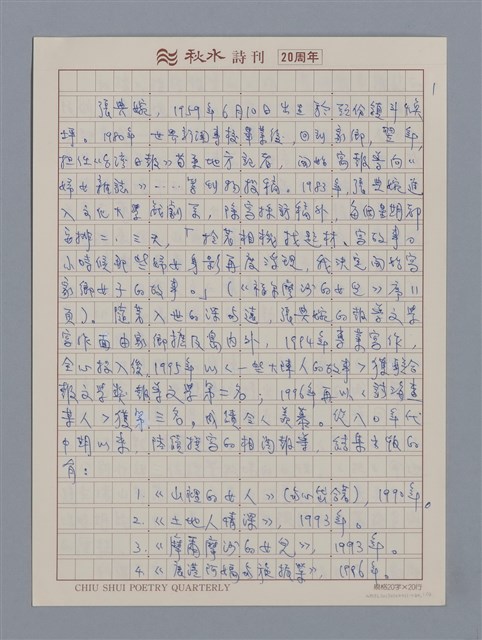 秋水 詩刊 20周年
1
張典婉,1959年6月10日出生於頭份鎮斗煥
坪。1980年世界新聞專校畢業後,回到家鄉,翌年,
担任《台湾日報》苗栗地方記者,開始寫報導向《
婦女雜誌》……等刊物投稿。1983年,張典婉進
入文化大學戲劇系,除寫採訪稿外,每個星期都
二、三天,「拎著相機找題材、寫故事。
小時候那些婦女身影再度浮現,我決定開始寫
家鄉女子的故事。」(《福爾摩沙的女兒》序11
頁)。隨著入世的深,張典婉的報導文學
寫作面由家鄉擴及島內外,1994年專業寫作,
全心投入後,1995年以〈一些大陳人的故事〉獲聯合
報文學獎報導文學第三名;1996年再以〈請靖查
某人〉獲第三名。成績令人羨慕。從八〇年代
中期以來,陸續撰寫的相關報導,結集出版的
有:
1.《山裡的女人》(),1990年。
2.《土地人情深》,1993年。
3.《摩爾摩沙的女兒》,1993年。
4.《》,1996年。
CHIU SHUI POETRY QUARTERLY
規格20字×20行